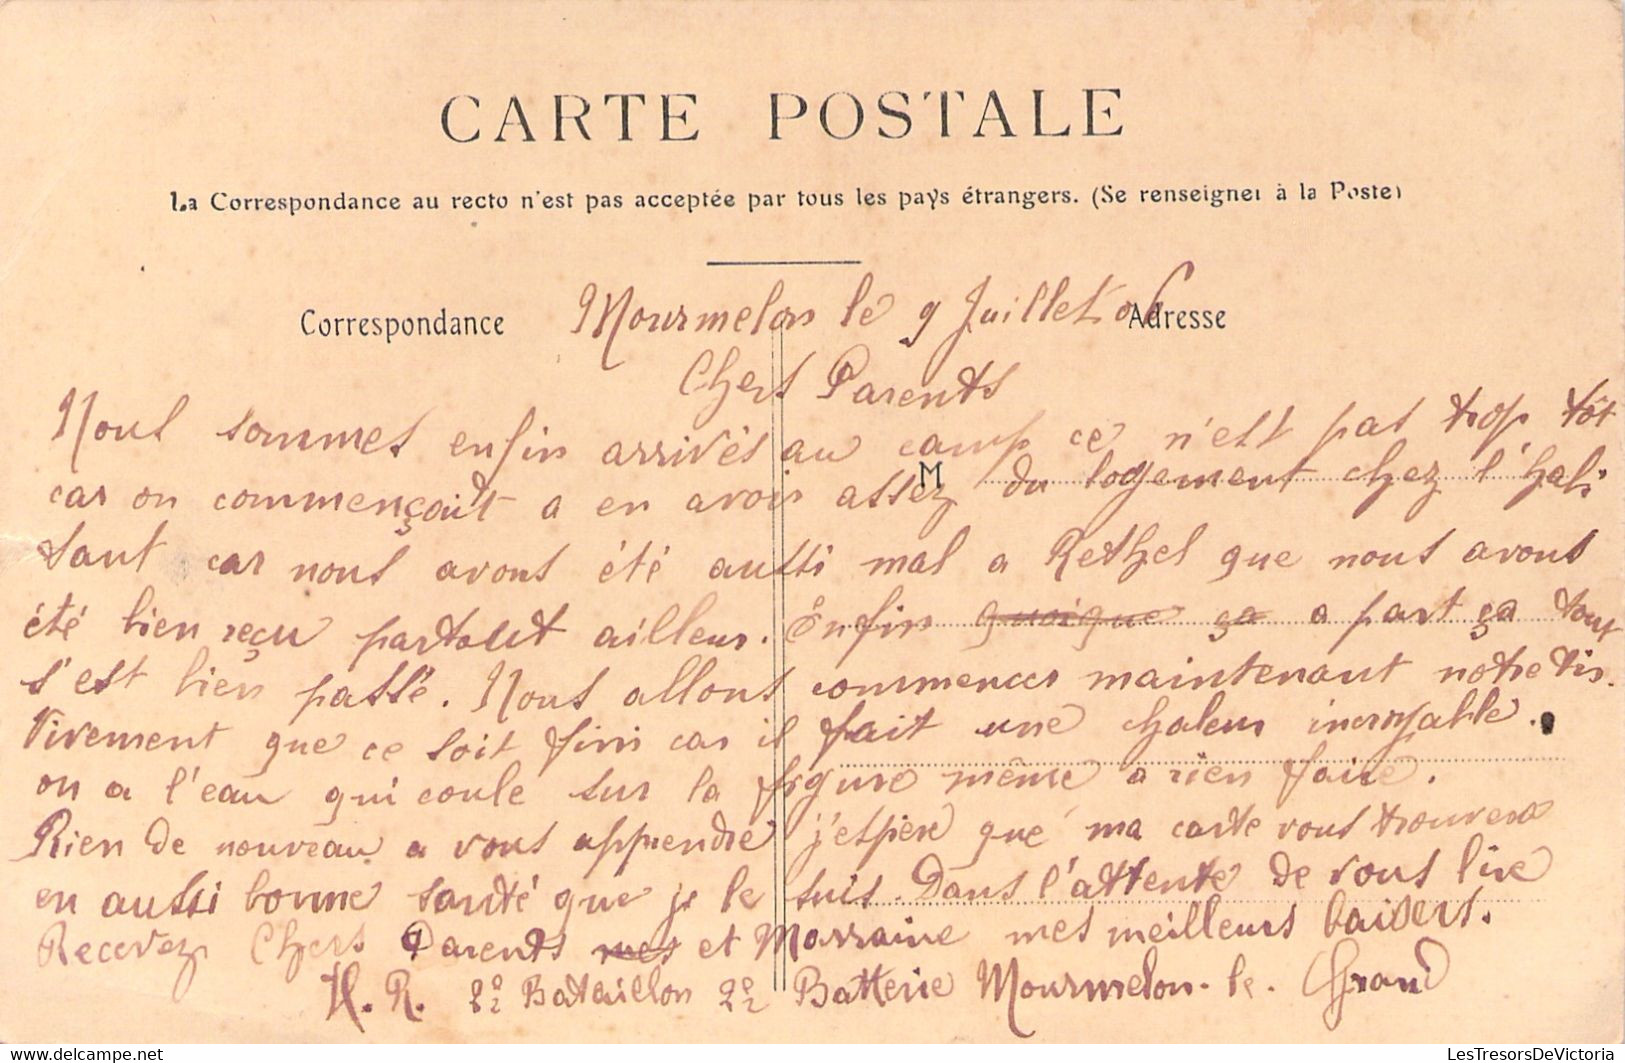 CARTE POSTALE
La Correspondance au recto n'est pas acceptée par tous les pays étrangers. (Se renseigner à la Poste)
Correspondance
Adresse
Mourmelon le 9 Juillet 06
Chers Parents
Nous sommes enfin arrivés au camp ce n'est pas trop tôt
M
car on commençait a en avoir assez du logement chez l'habi
tant car nous avons été aussi mal a Rethel que nous avons
été bien reçu partout ailleur. Enfin quoique ça a part ça tout
s'est bien passé. Nous allons commencer maintenant notre tir.
Vivement que ce soit fini car il fait une chaleur incroyable.
on a l'eau qui coule sur la figure même a rien faire.
Rien de nouveau a vous apprendre j'espère que ma carte vous trouvera
en aussi bonne santé que je le suis. Dans l'attente de vous lire
Recevez Chers Parents mes et Marraine mes meilleurs baisers.
H. R. 2e Bataillon 2e Batterie Mourmelon-le-Grand
LesTresorsDeVictoria